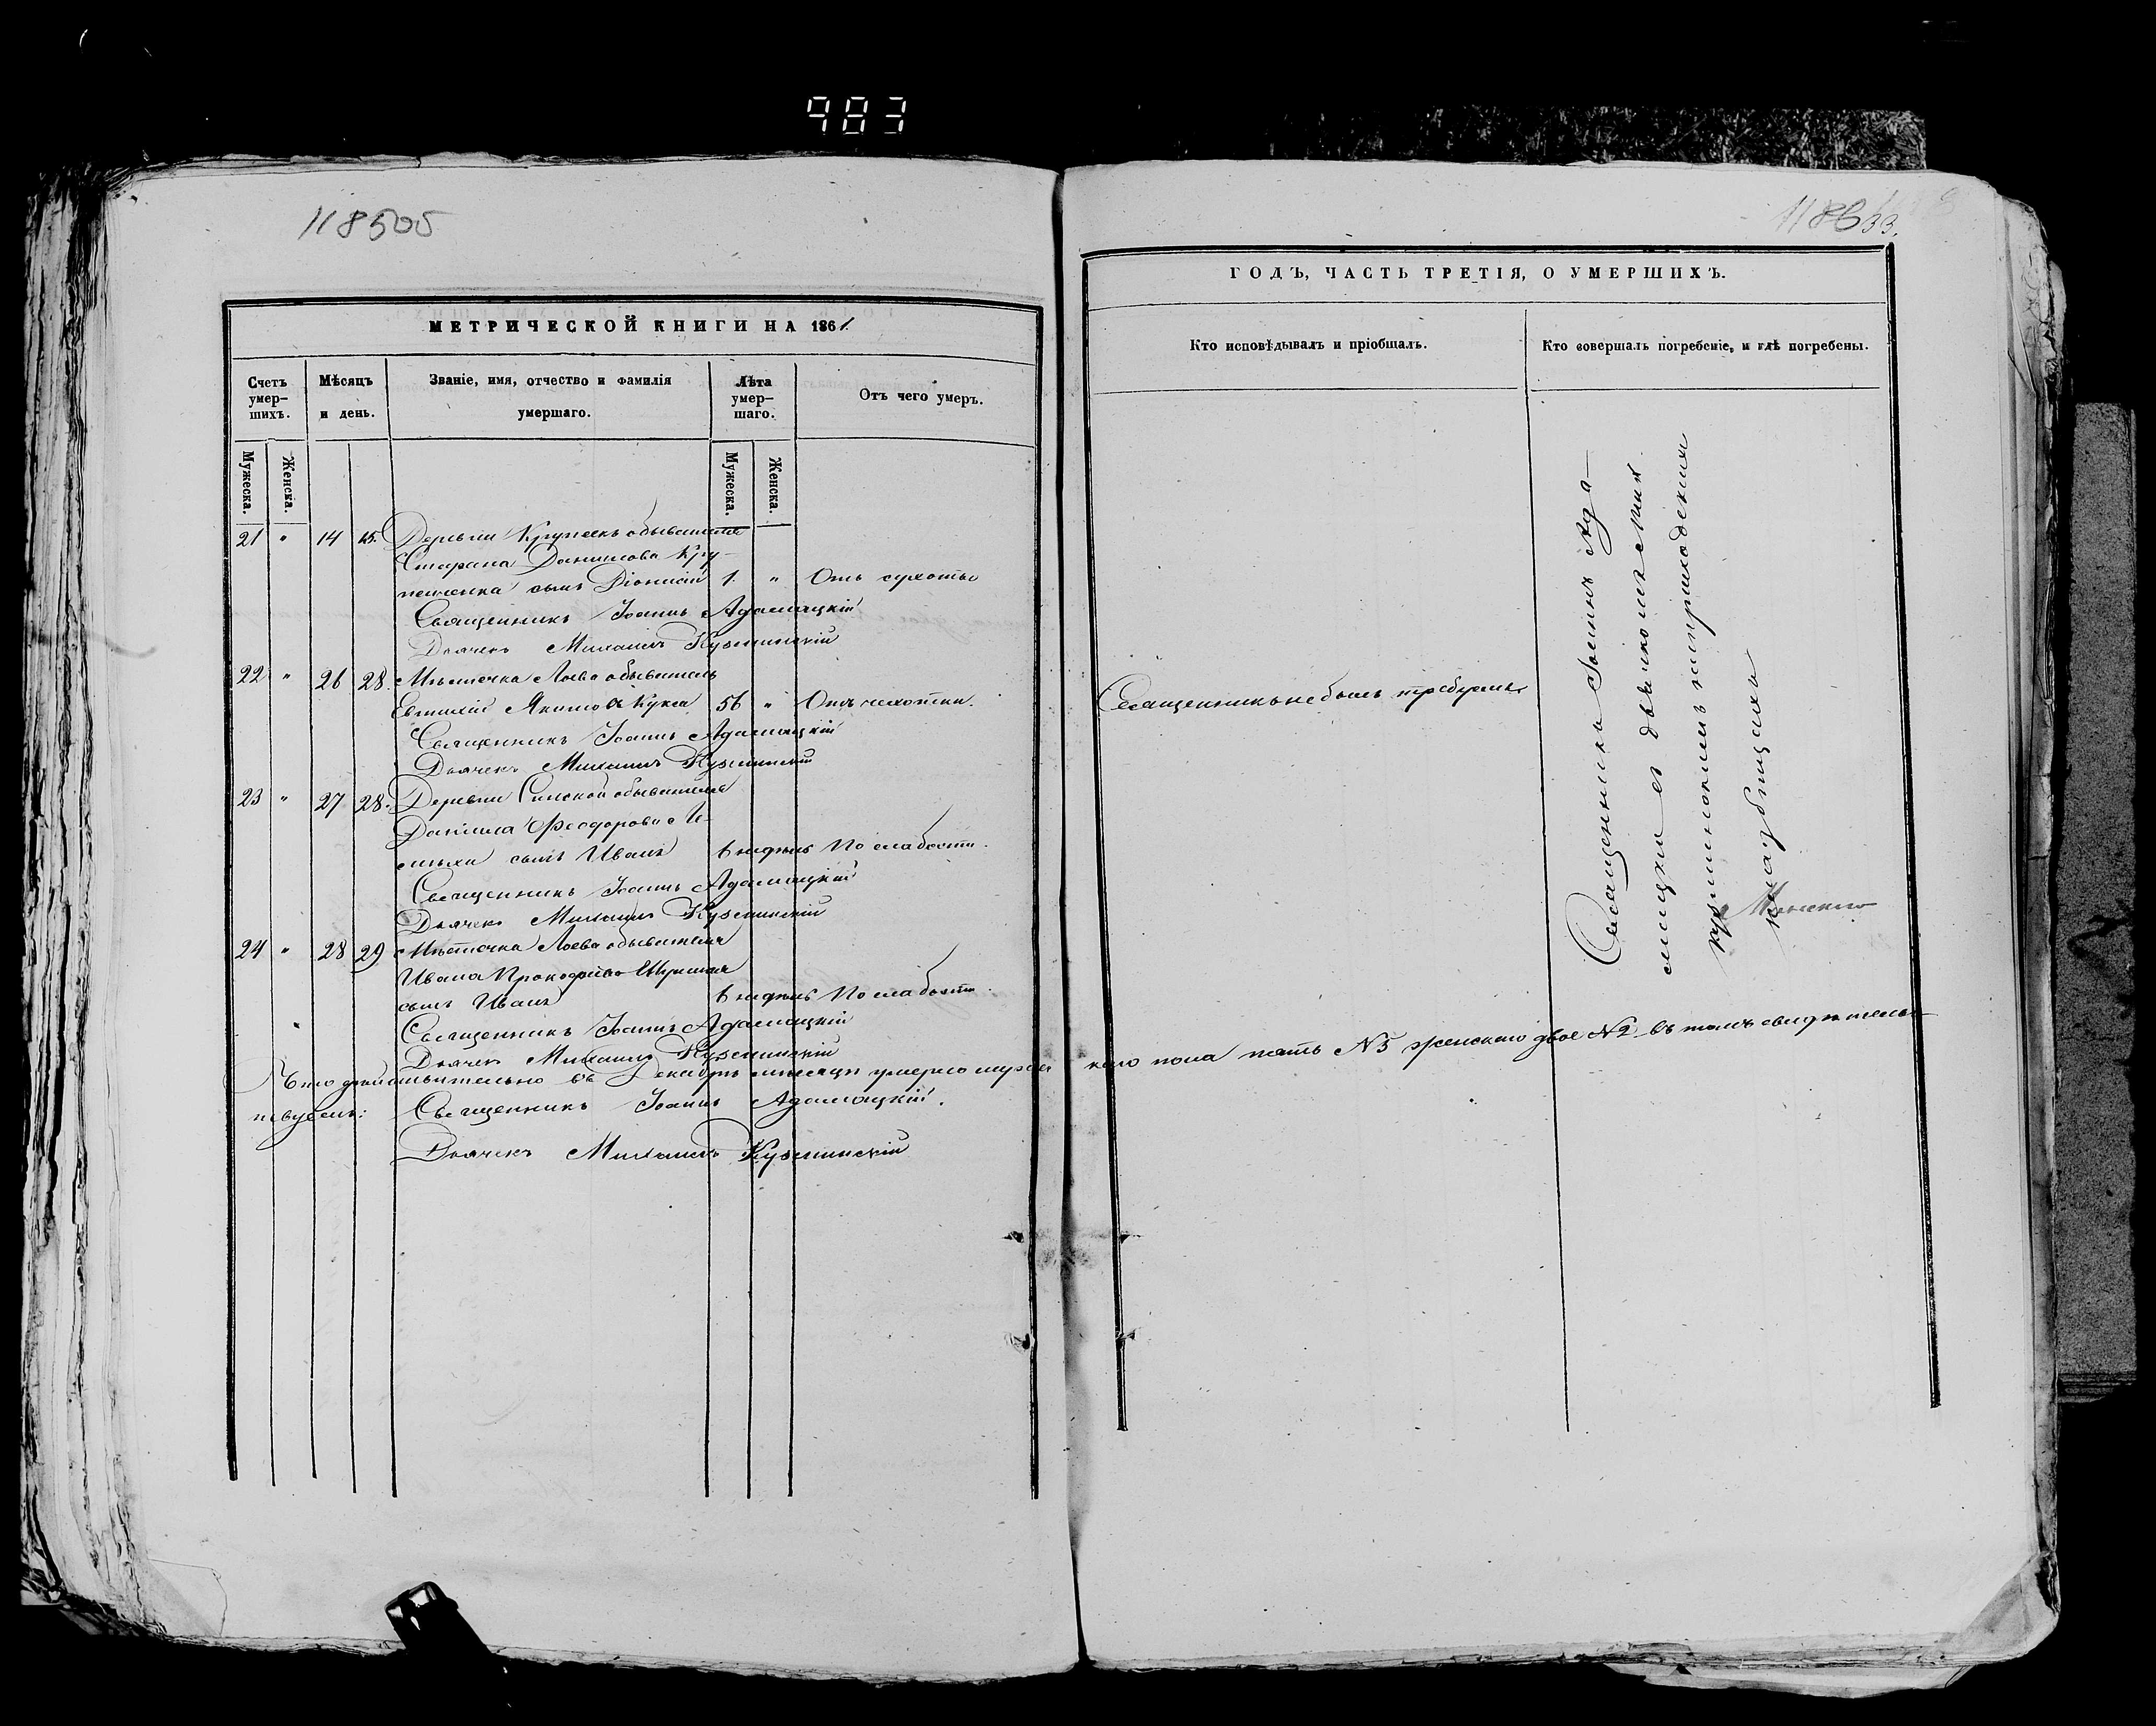 983
118505
МЕТРИЧЕСКОЙ КНИГИ НА 1861
Счетъ умер-шихъ.
Мѣсяцъ и день.
Званіе, имя, отчество и фамилія умершаго.
Лѣта умер-шаго.
Отъ чего умеръ.
Мужеска.
Женска.
Мужеска.
Женска.
21 " 14 15. Деревни Крупекъ обывателя
Стефана Данилова Кру-
пенька сынъ Діонисій 1. " Отъ сухоты
Священникъ Іоаннъ Адамацкій
Дьячекъ Михаилъ Кузминскій
22 " 26 28. Мѣстечка Лоева обыватель
Евтихій Якимовъ Кукса 56 " Отъ чахотки.
Священникъ Іоаннъ Адамацкій
Дьячекъ Михаилъ Кузминскій
23 " 27 28. Деревни Синской обывателя
Даніила Феодорова
сынъ Иванъ 6 недѣль По слабости.
Священникъ Іоаннъ Адамацкій
Дьячекъ Михаилъ Кузминскій
24 " 28 29 Мѣстечка Лоева обывателя
Ивана Прокофьева
сынъ Иванъ 6 недѣль По слабости.
Священникъ Іоаннъ Адамацкій
Дьячекъ Михаилъ Кузминскій
Что дѣйствительно въ Декабрѣ мѣсяцѣ умерло мужес
кого пола пять №5 женскаго двое №2 въ томъ свидѣтель-
ствуемъ: Священникъ Іоаннъ Адамацкій.
Дьячекъ Михаилъ Кузминскій
ГОДЪ, ЧАСТЬ ТРЕТІЯ, О УМЕРШИХЪ.
Кто исповѣдывалъ и пріобщалъ.
Кто совершалъ погребеніе, и гдѣ погребены.
Священникъ не былъ требуемъ
Священникъ Іоаннъ Ада-
мацкій съ дьячкомъ Мих.
Кузминскимъ на приходскихъ
кладбищахъ